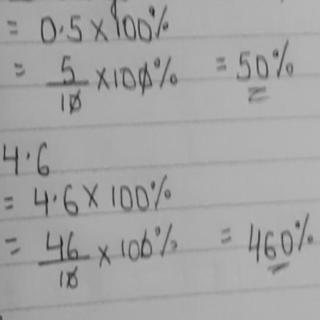 = 0.5 × 100%
= 5/10 × 100% = 50%
4.6
= 4.6 × 100%
= 46/10 × 100% = 460%